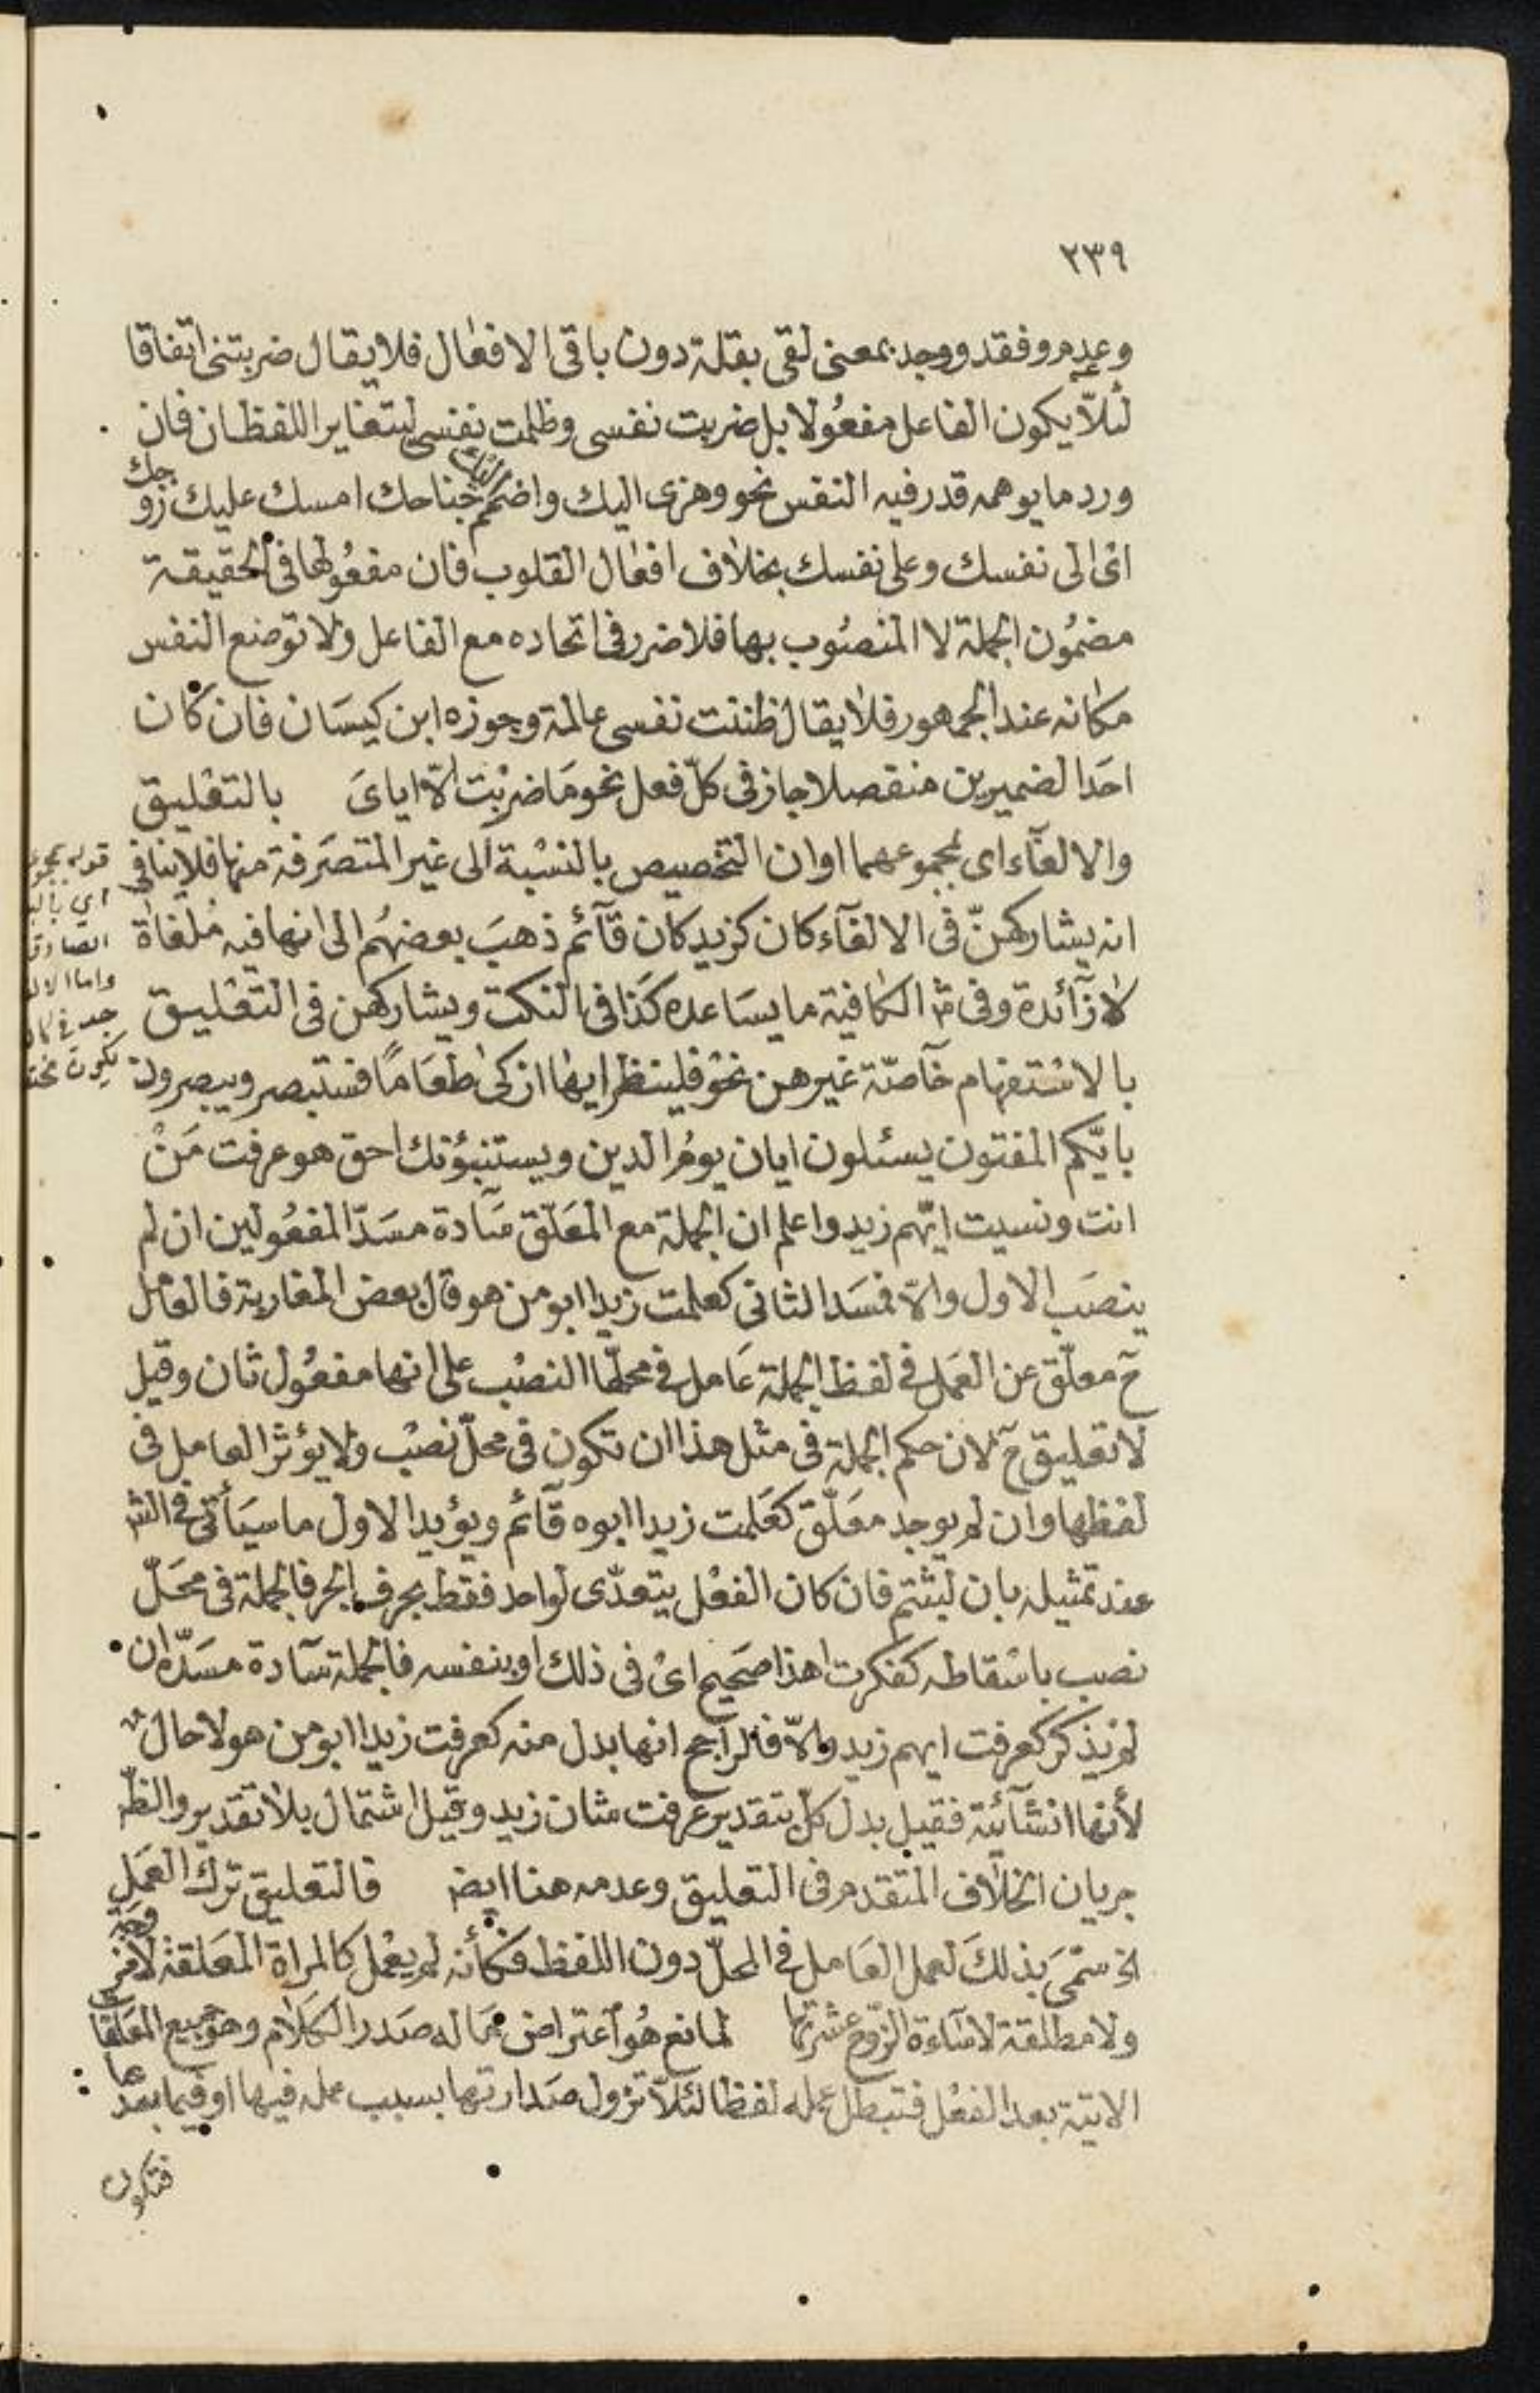 ٢٣٩
وعدم وفقد ووجد بمعنى لقى بقلة دون باقى الافعال فلا يقال ضربتنى اتفاقا
لئلّا يكون الفاعل مفعُولا بل ضربت نفسى وظلمت نفسى ليتغاير اللفظان فان
ورد ما يوهمه قدر فيه النفس نحو وهزى اليك واضمم اليك جناحك امسك عليك زوجك
اى الى نفسك وعلى نفسك بخلاف افعال القلوب فان مفعُولها فى الحقيقة
مضمُون الجملة لا المنصُوب بها فلا ضرر فى اتحاده مع الفاعل ولا توضع النفس
مكانه عند الجمهور فلا يقال ظننت نفسى عالمة وجوزه ابن كيسَان فان كان
احَد الضميرين منفصلا جاز فى كلّ فعل نحو مَا ضربْت الّا اياىَ بالتعْليق
والالغآء اى بمجموعهما او ان التخصيص بالنسْبة الى غير المتصَرفة منها فلا ينافى
انه يشاركهنّ فى الالغآء كان كزيد كان قآئم ذهبَ بعضهُم الى انها فيه مُلغاة
لا زآئدة وفى الكافية ما يسَاعده كذَا فى النكت ويشاركهن فى التعْليق
بالاسْتفهام خآصّة غيرهن نحوْ فلينظر ايها ازكى طعَامًا فستبصر ويبصرون
بايّكم المفتون يسئلون ايان يومُ الدين ويستنبؤنك احق هو عرفت مَنْ
انت ونسيت ايّهم زيد واعلم ان الجملة مع المعَلّق سآدة مسَدّ المفعُولين ان لم
ينصَب الاول والّا فمسَد الثانى كعلمت زيدا ابو من هو قال بعض المغاربة فالعَامل
حٓ معلّق عن العَمل فى لفظ الجملة عَامل فى محلّها النصْب على انها مفعُول ثان وقيل
لا تعليق حٓ لان حكم الجملة فى مثل هذا ان تكون فى محلّ نصْب ولا يؤثر العامل فى
لفظها وان لم يوجد معَلّق كعَلمت زيدا ابوه قآئم ويؤيد الاول ما سيَأتى فى الش
عند تمثيله بان لبثتم فان كان الفعْل يتعدّى لواحد فقط بحرف الجر فالجملة فى محَلّ
نصب باسْقاطه كفكرت اهذا صَحيح اىْ فى ذلك او بنفسه فالجملة سآدة مسَدّه ان
لم يذكر كعرفت ايهم زيد والّا فالراجح انها بدل منه كعرفت زيدا ابو من هو لا حال
لأنها انشآئية فقيل بدل كلّ بتقدير عرفت شان زيد وقيل اشتمال بلا تقدير والظّ
جريان الخلاف المتقدم فى التعليق وعدمه هنا ايض فالتعليق ترك العَمل
الخ سمّىَ بذلكَ لعمل العَامل فى المحلّ دون اللفظ فكأنه لم يعْمل كالمراة المعَلقة لا مزوجة
ولا مطلقة لاسَاءة الزوج عشرتها لمانع هُو اعتراض ممَا له صَدر الكلَام وهو جميع المعَلقات
الاتية بعد الفعْل فتبطل عمله لفظا لئلّا تزول صَدارتها بسبب عمله فيها او فيما بعدها
فتكون
قوله بمجموعهما